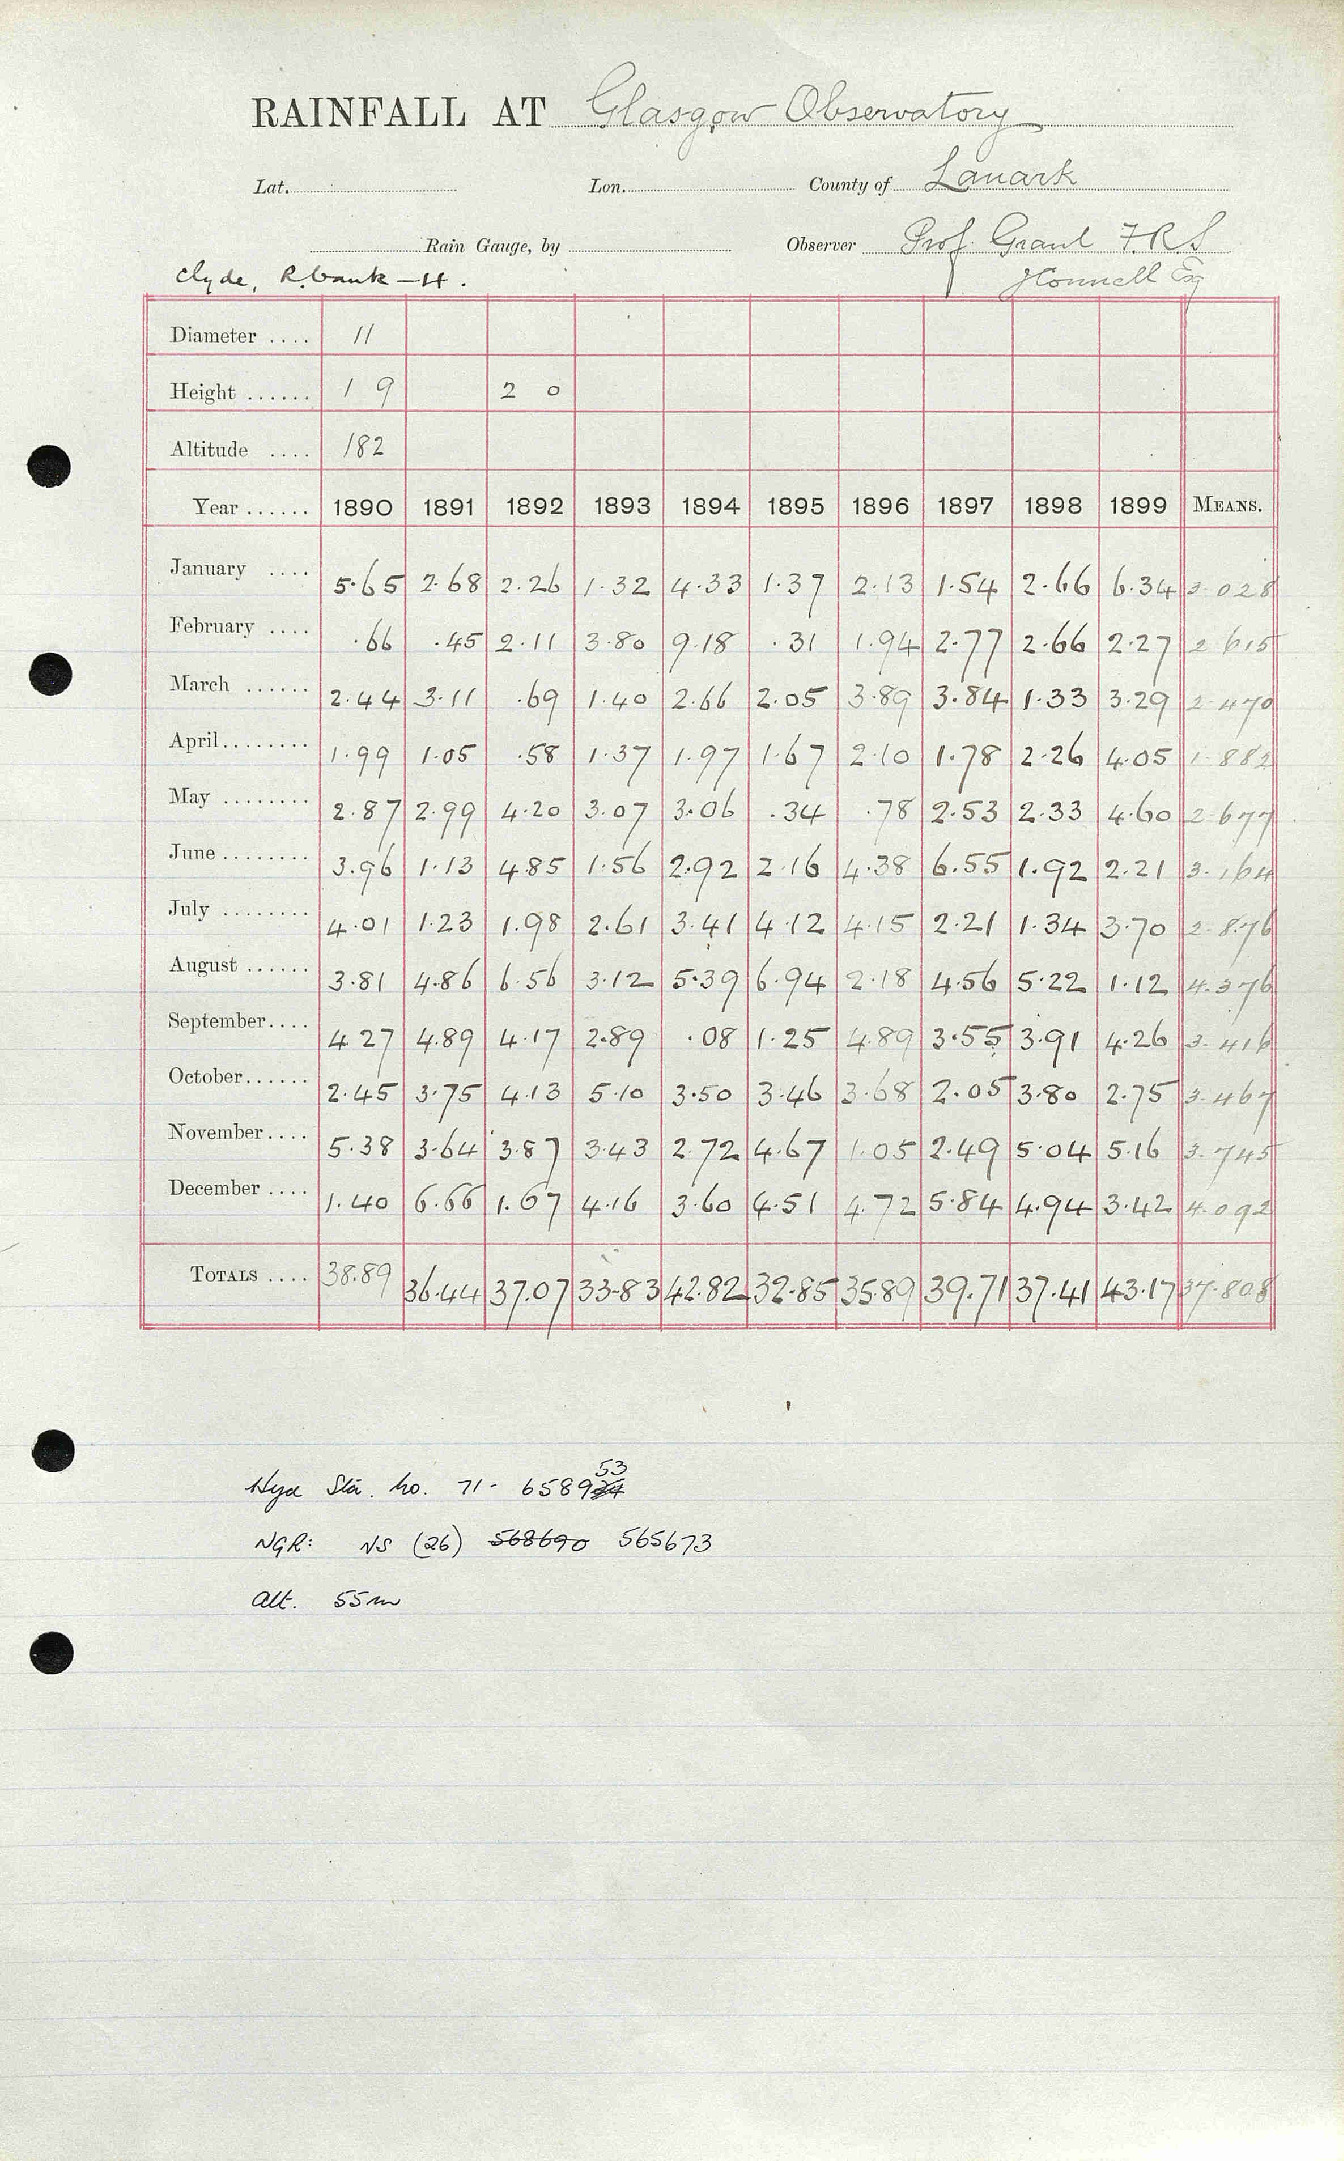 RAINFALL AT Glasgow Observatory
Lat. Lon. County of Lanark
Rain Gauge, by Observer Prof. Grant F.R.S
Clyde, R. bank - H. Connell Esq
Diameter .... 11
Height ...... 1 9 2 0
Altitude .... 182
Year ...... 1890 1891 1892 1893 1894 1895 1896 1897 1898 1899 MEANS.
January .... 5.65 2.68 2.26 1.32 4.33 1.37 2.13 1.54 2.66 6.34 3.028
February .... .66 .45 2.11 3.80 9.18 .31 1.94 2.77 2.66 2.27 2.615
March ...... 2.44 3.11 .69 1.40 2.66 2.05 3.89 3.84 1.33 3.29 2.470
April ........ 1.99 1.05 .58 1.37 1.97 1.67 2.10 1.78 2.26 4.05 1.882
May ........ 2.87 2.99 4.20 3.07 3.06 .34 .78 2.53 2.33 4.60 2.677
June ........ 3.96 1.13 4.85 1.56 2.92 2.16 4.38 6.55 1.92 2.21 3.164
July ........ 4.01 1.23 1.98 2.61 3.41 4.12 4.15 2.21 1.34 3.70 2.876
August ...... 3.81 4.86 6.56 3.12 5.39 6.94 2.18 4.56 5.22 1.12 4.376
September .... 4.27 4.89 4.17 2.89 .08 1.25 4.89 3.55 3.91 4.26 3.416
October ...... 2.45 3.75 4.13 5.10 3.50 3.46 3.68 2.05 3.80 2.75 3.467
November .... 5.38 3.64 3.87 3.43 2.72 4.67 1.05 2.49 5.04 5.16 3.745
December .... 1.40 6.66 1.67 4.16 3.60 4.51 4.72 5.84 4.94 3.42 4.092
TOTALS .... 38.89 36.44 37.07 33.83 42.82 32.85 35.89 39.71 37.41 43.17 37.808
53
Hyd Sta. No. 71- 6589
NGR: NS (26) 568690 565673
Alt. 55m